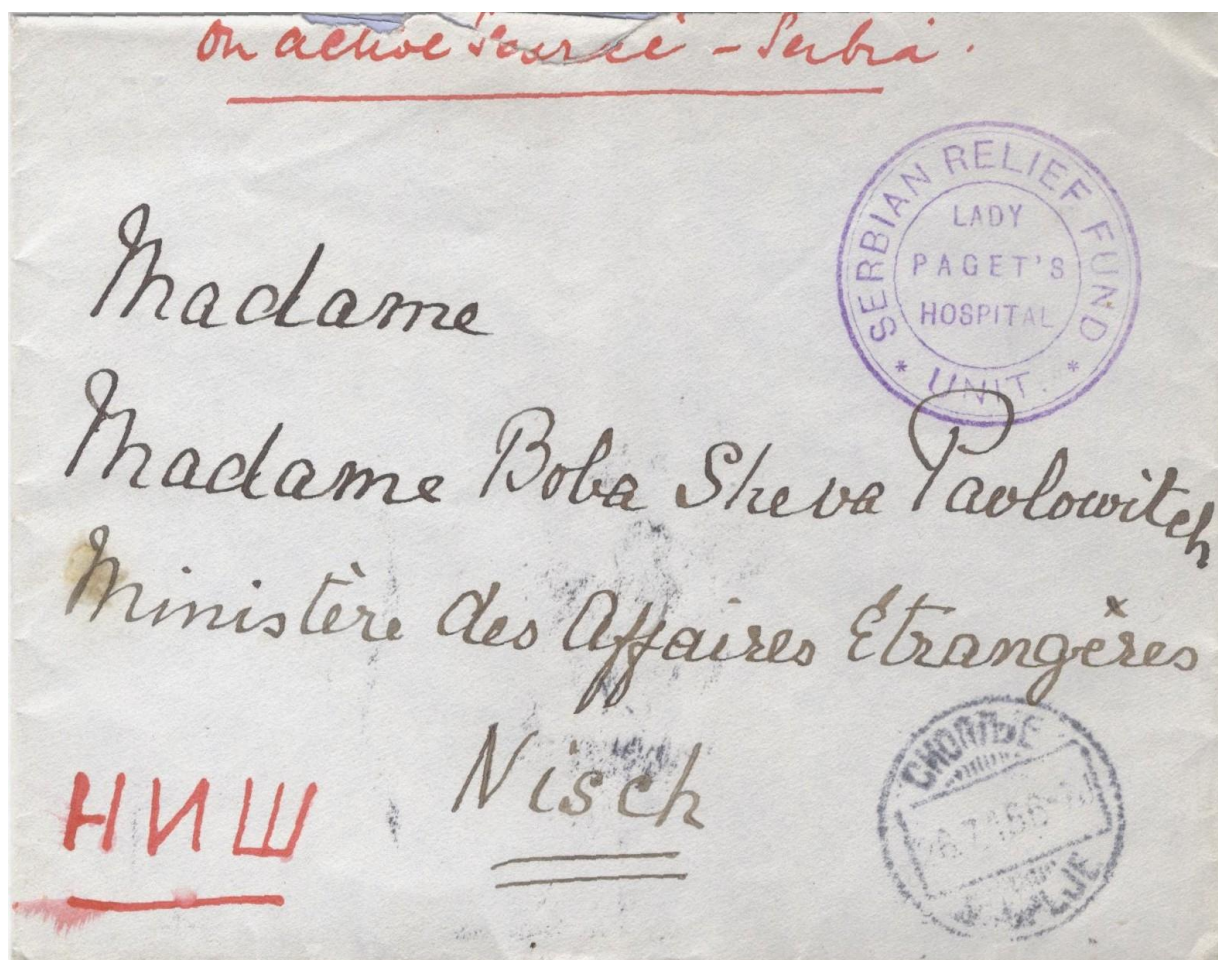 On active Service - Serbia.
SERBIAN RELIEF FUND
LADY
PAGET'S
HOSPITAL
* UNIT *
Madame
Madame Boba Sheva Pavlowitch
Ministère des Affaires Etrangères
Nisch
НИШ
СКОПЉЕ